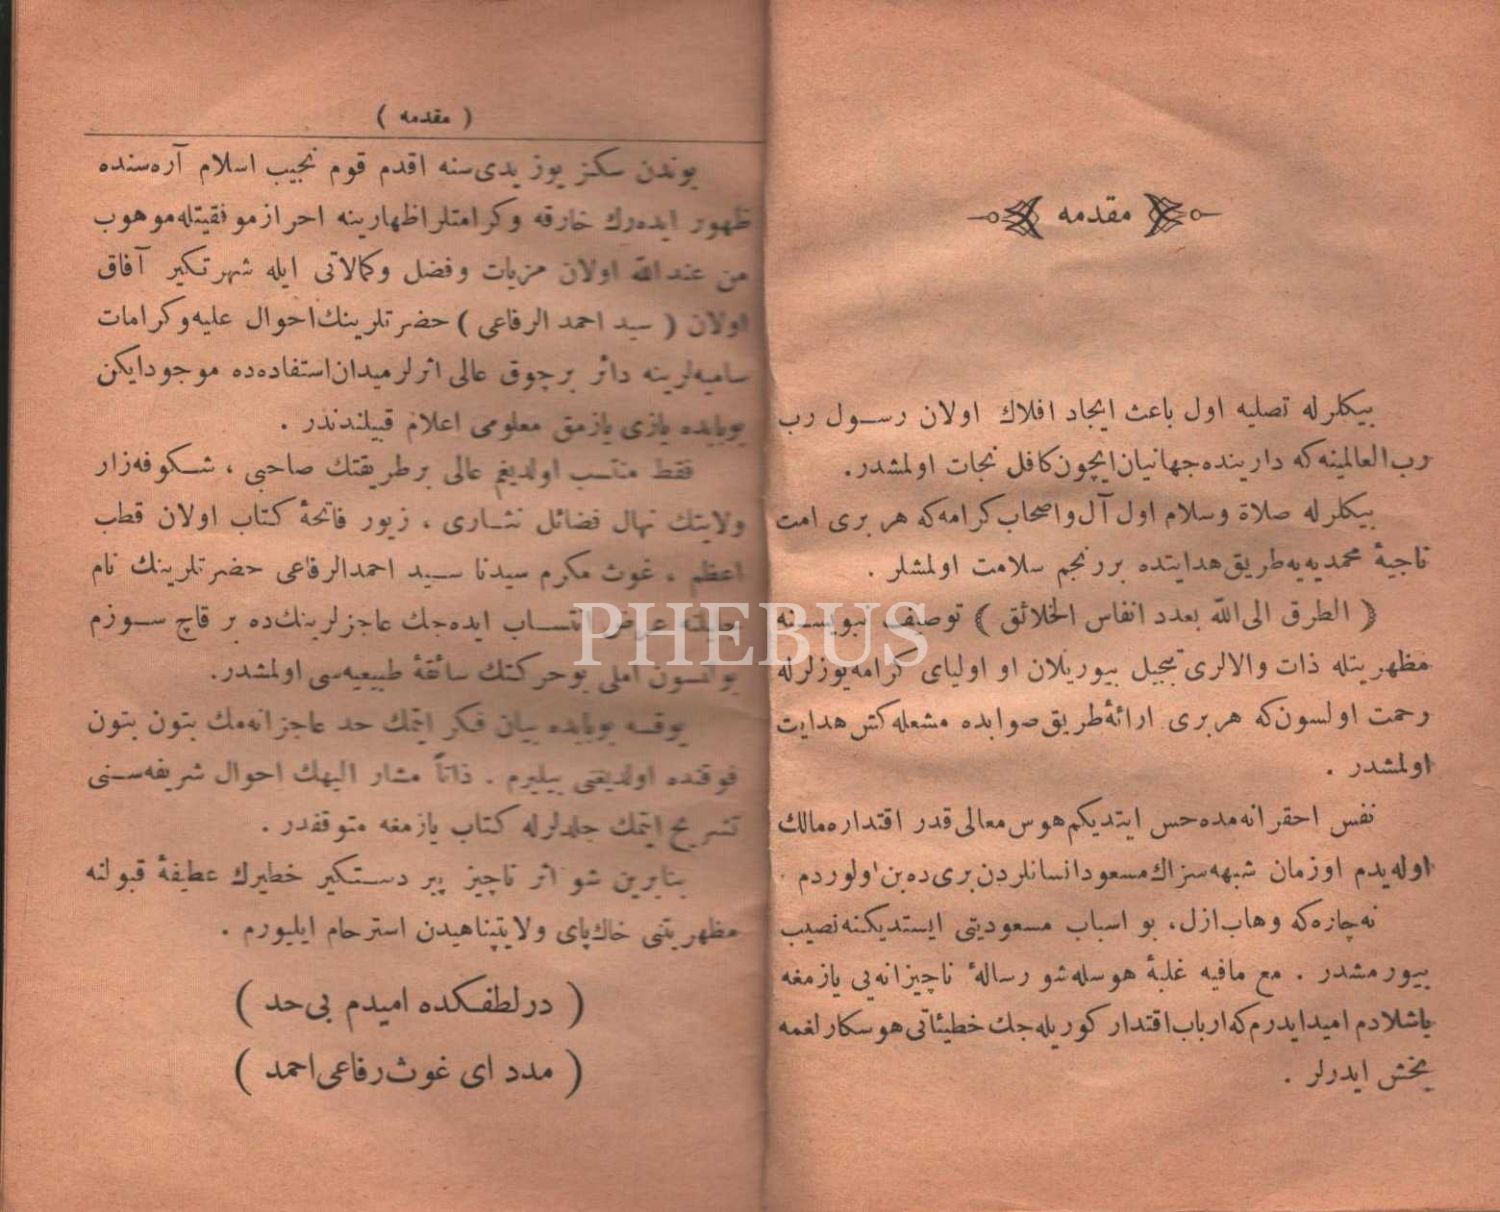 مقدمه
بیكلرله تصلیه اول باعث ایجاد افلاك اولان رسول رب
رب العالمینه كه دارینده جهانیان ایچون كافل نجات اولمشدر.
بیكلرله صلاة وسلام اول آل واصحاب كرامه كه هر بری امت
ناجیهٔ محمدیه یه طریق هدایتده بررنجم سلامت اولمشلر .
﴿ الطرق الی الله بعدد انفاس الخلائق ﴾ توصیف نبویسنه
مظهریتله ذات والالری تبجیل بیوریلان او اولیای كرامه یوزلرله
رحمت اولسون كه هر بری ارائهٔ طریق صوابده مشعله كش هدایت
اولمشدر .
نفس احقرانه مده حس ایتدیكم هوس معالی قدر اقتداره مالك
اوله یدم اوزمان شبهه سزاك مسعود انسانلردن بری ده بن اولوردم .
نه چاره كه وهاب ازل، بو اسباب مسعودیتی ایستدیكنه نصیب
بیورمشدر . مع مافیه غلبهٔ هوسله شو رسالهٔ ناچیزانه یی یازمغه
باشلادم امید ایدرم كه ارباب اقتدار كوریله جك خطیئاتی هوسكارلغمه
بخش ایدرلر .
( مقدمه )
بوندن سكز یوز یدی سنه اقدم قوم نجیب اسلام آره سنده
ظهور ایده رك خارقه وكرامتلر اظهارینه احراز موفقیتله موهوب
من عند الله اولان مزیات وفضل وكمالاتی ایله شهرتكیر آفاق
اولان ( سید احمد الرفاعی ) حضرتلرینك احوال علیه وكرامات
سامیه لرینه دائر برچوق عالی اثرلر میدان استفاده ده موجود ایكن
بوبابده یازی یازمق معلومی اعلام قبیلندندر .
فقط منتسب اولدیغم عالی برطریقتك صاحبی ، شكوفه زار
ولایتك نهال فضائل نثاری ، زیور فاتحهٔ كتاب اولان قطب
اعظم ، غوث مكرم سیدنا سید احمد الرفاعی حضرتلرینك نام
عرض انتساب ایده جك عاجزلرینك ده بر قاچ سوزم
بولنسون املی بوحركتك سائقهٔ طبیعیه سی اولمشدر.
یوقسه بوبابده بیان فكر ایتمك حد عاجزانه مك بتون بتون
فوقنده اولدیغنی بیلیرم . ذاتاً مشار الیهك احوال شریفه سنی
تشریح ایتمك جلدلرله كتاب یازمغه متوقفدر .
بنابرین شو اثر ناچیز پیر دستكیر خطیرك عطیفهٔ قبولنه
مظهریتنی خاك پای ولایتپناهیدن استرحام ایلیورم .
( درلطفكده امیدم بی حد )
( مدد ای غوث رفاعی احمد )
PHEBUS